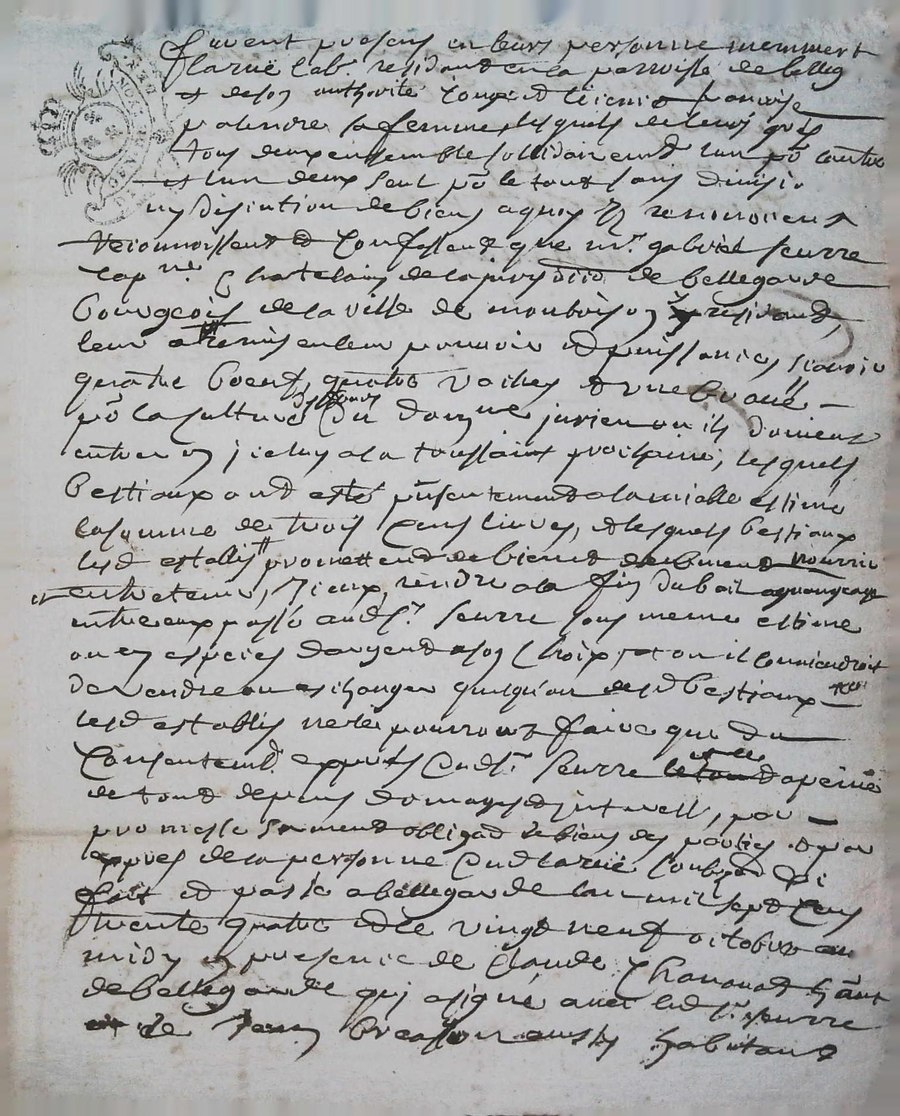 furent presens en leurs personne
Larue lab. residant en la parroisse de belleg
et de son authorité
palendre sa femme, lesquels de leurs grés
tous deux ensemble sollidairement l'un po lautre
et lun deux seul po le tout sans divisio
ny discution de biens a quoy ils renoncent
Reconnoissent et Confessent que mr. gabriel seurre
Cap. ne Chatelain de la jurisdiction de bellegarde
bourgeois de la ville de monbrison y residant,
leur a remis en leur pouvoir et puissances scavoir
quatre boeufs, quatre vaches et une
po la culture du domne jurieu ou ils doivent
entrer en jcelluy a la toussaint prochaine, lesquels
bestiaux ont esté presentement a lamiable estimé
la somme de trois Cens livres, et lesquels bestiaux
lesd establis promettent de bien et deubment nourrir
entretenir, jceux, rendre a la fin du bail a
entre eux passé audsr. seurre sous meme estime
ou en especes dargent a son Choix, et ou il conviendroit
de vendre ou eschanger quelquun desd bestiaux
lesd establis ne le pourront faire que du
Consentemt. exprés dudsr. seurre a peine
de tous depens domages et jnterests, par
promesse serment obligaon de biens des parties et par
exprés de la personne dud larue
fait et passé a bellegarde lan mil sept Cens
trente quatre et le vingt neuf octobre
midy en presence de Claude Chavanat
de bellegarde qui a signé avec led sr. seurre
et de Jean habitant